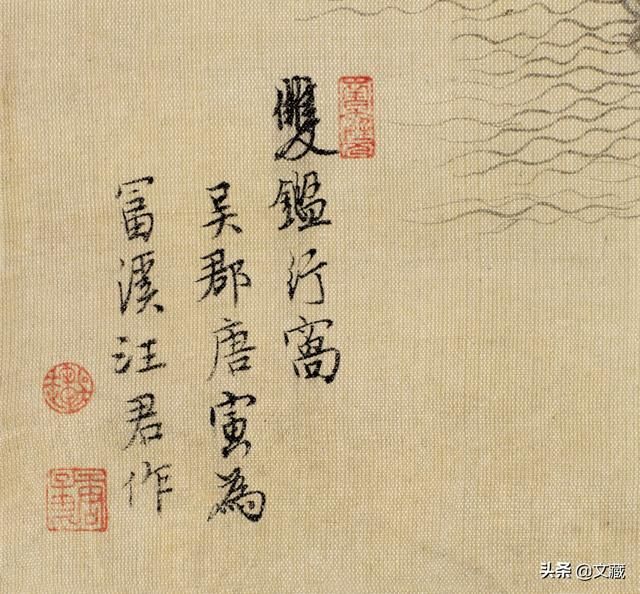 雙鑑行窩
吳郡唐寅為
富溪汪君作
头条 @文藏